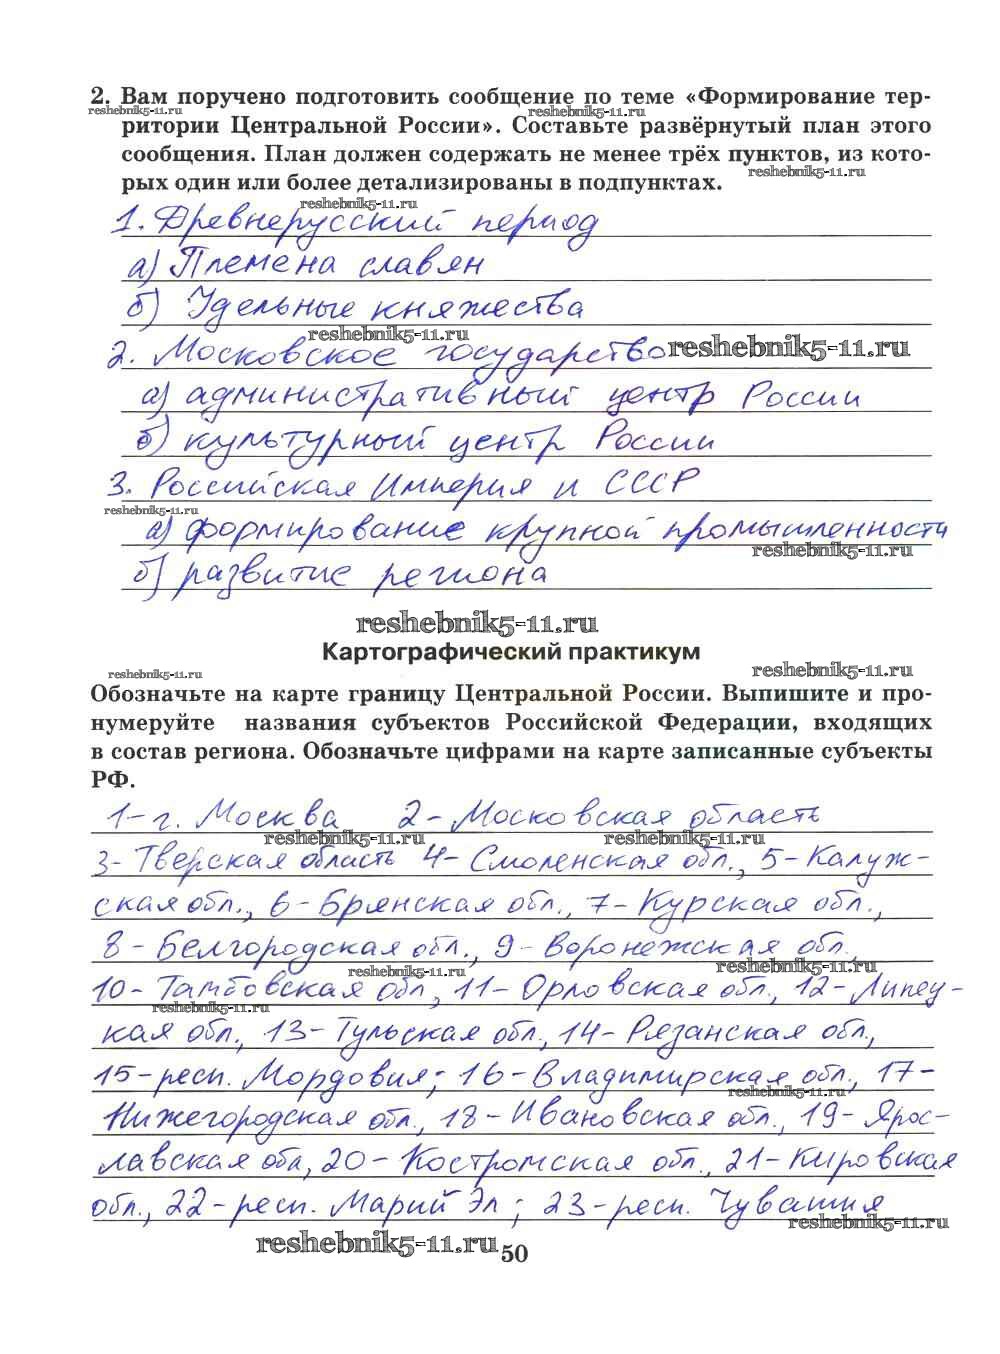 2. Вам поручено подготовить сообщение по теме «Формирование тер-
reshebnik5-11.ru reshebnik5-11.ru
ритории Центральной России». Составьте развёрнутый план этого
сообщения. План должен содержать не менее трёх пунктов, из кото-
reshebnik5-11.ru
рых один или более детализированы в подпунктах.
reshebnik5-11.ru
1. Древнерусский период
а) Племена славян
б) Удельные княжества
reshebnik5-11.ru
2. Московское государство reshebnik5-11.ru
а) административный центр России
б) культурный центр России
3. Российская Империя и СССР
reshebnik5-11.ru
а) формирование крупной промышленности
reshebnik5-11.ru
б) развитие региона
reshebnik5-11.ru
Картографический практикум
reshebnik5-11.ru reshebnik5-11.ru
Обозначьте на карте границу Центральной России. Выпишите и про-
нумеруйте названия субъектов Российской Федерации, входящих
в состав региона. Обозначьте цифрами на карте записанные субъекты
РФ.
1-г. Москва 2-Московская область
reshebnik5-11.ru reshebnik5-11.ru
3-Тверская область 4-Смоленская обл., 5-Калуж-
ская обл., 6-Брянская обл., 7-Курская обл.,
8-Белгородская обл., 9-Воронежская обл.
reshebnik5-11.ru reshebnik5-11.ru
10-Тамбовская обл, 11-Орловская обл., 12-Липец-
reshebnik5-11.ru
кая обл., 13-Тульская обл., 14-Рязанская обл.,
15-респ. Мордовия; 16-Владимирская обл., 17-
reshebnik5-11.ru
Нижегородская обл., 18-Ивановская обл., 19-Ярос-
лавская обл, 20-Костромская обл., 21-Кировская
обл., 22-респ. Марий Эл; 23-респ. Чувашия
reshebnik5-11.ru
reshebnik5-11.ru 50